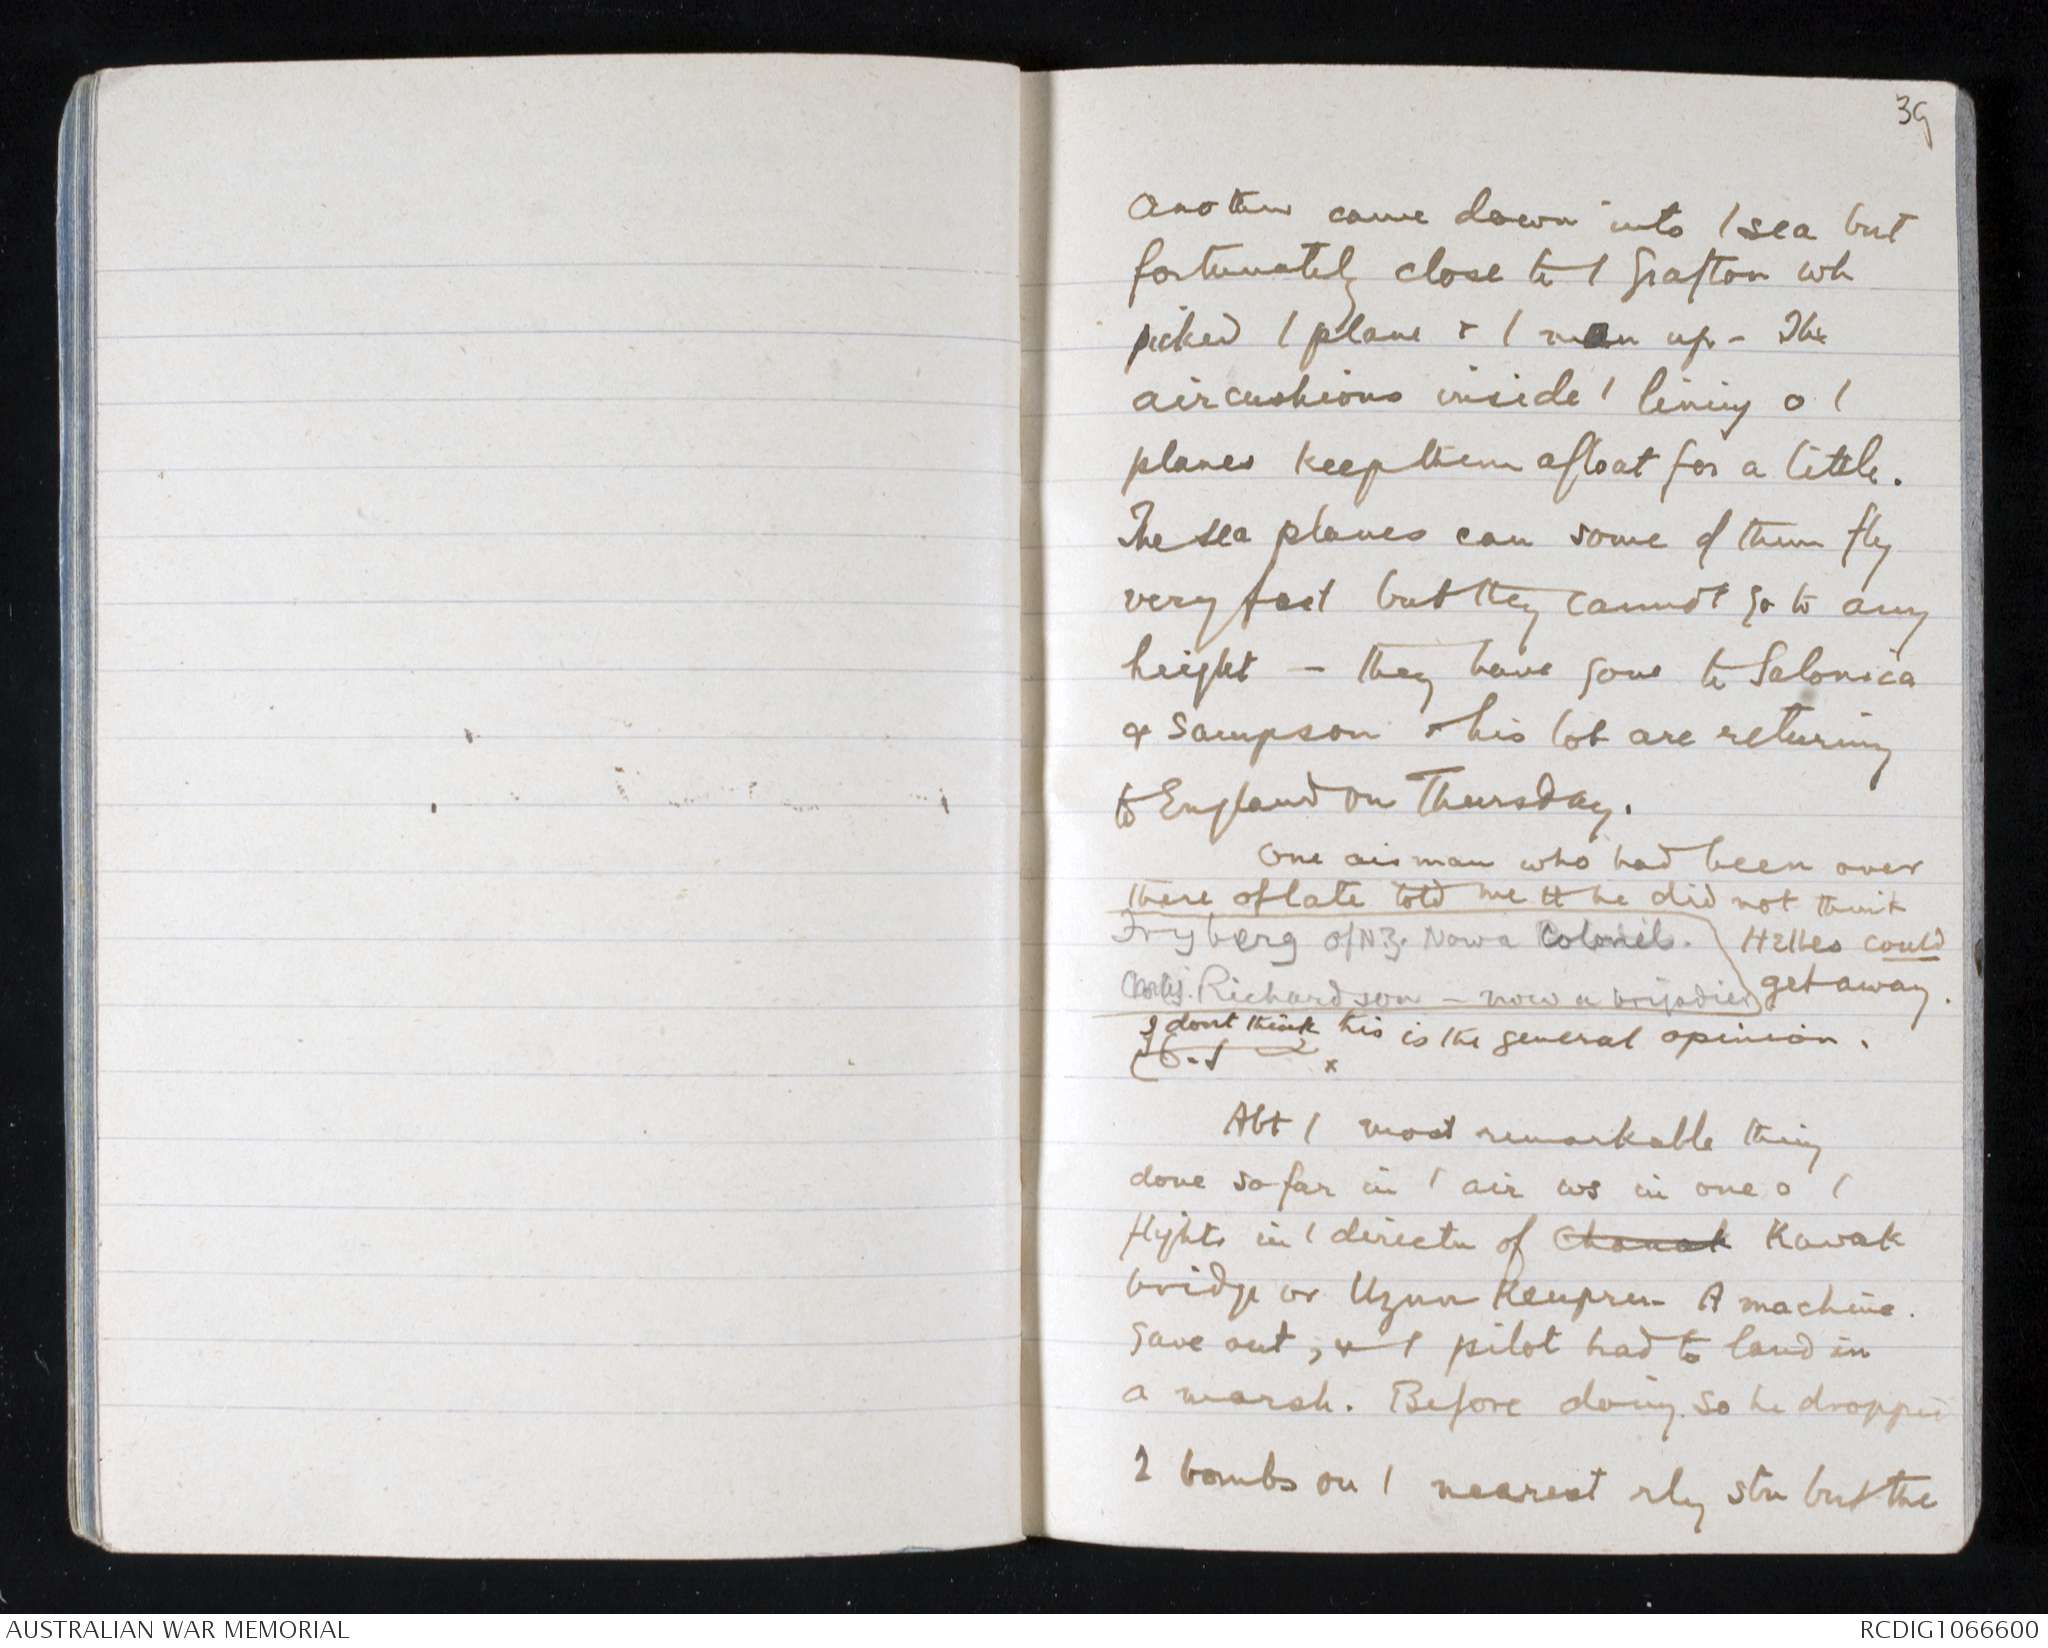 39
Another came down into / sea but
fortunately close to / Grafton wh
picked / plane & / man up - The
air cushions inside / lining o /
planes keep them afloat for a little.
The sea planes can some of them fly
very fast but they cannot go to any
height - they have gone to Salonica
& Sampson & his lot are returing
to England on Thursday.
One airman who had been over
there of late told me tt he did not think
Helles could
get away.
Fryberg of NZ. Now a Colonel.
Richardson - now a brigdier
I dont think this is the general opinion.
x
Abt / most remarkable thing
done so far in / air ws in one o /
flights in / directn of Chanak Kavak
bridge or Uzun Keupru - A machine
gave out, & / pilot had to land in
a marsh. Before doing so he dropped
2 bombs on / nearest rly stn but the
AUSTRALIAN WAR MEMORIAL
RCDIG1066600